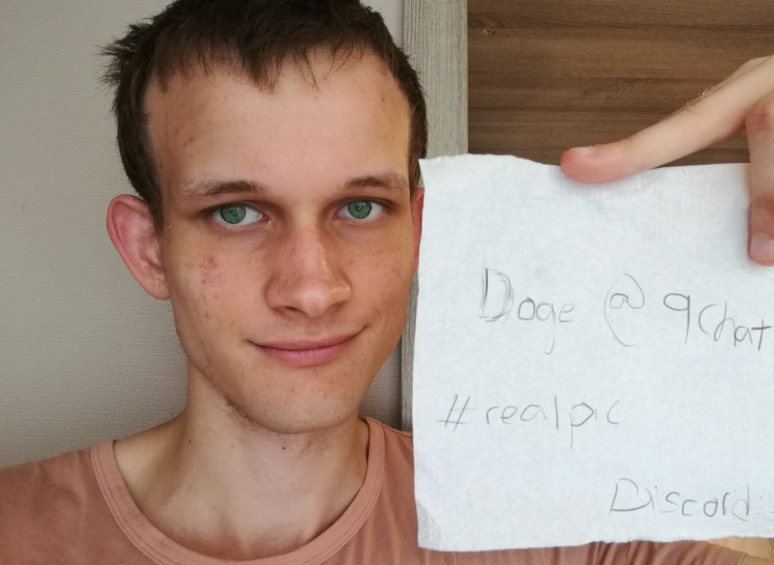 Doge @ 9chat
#realpic
Discord